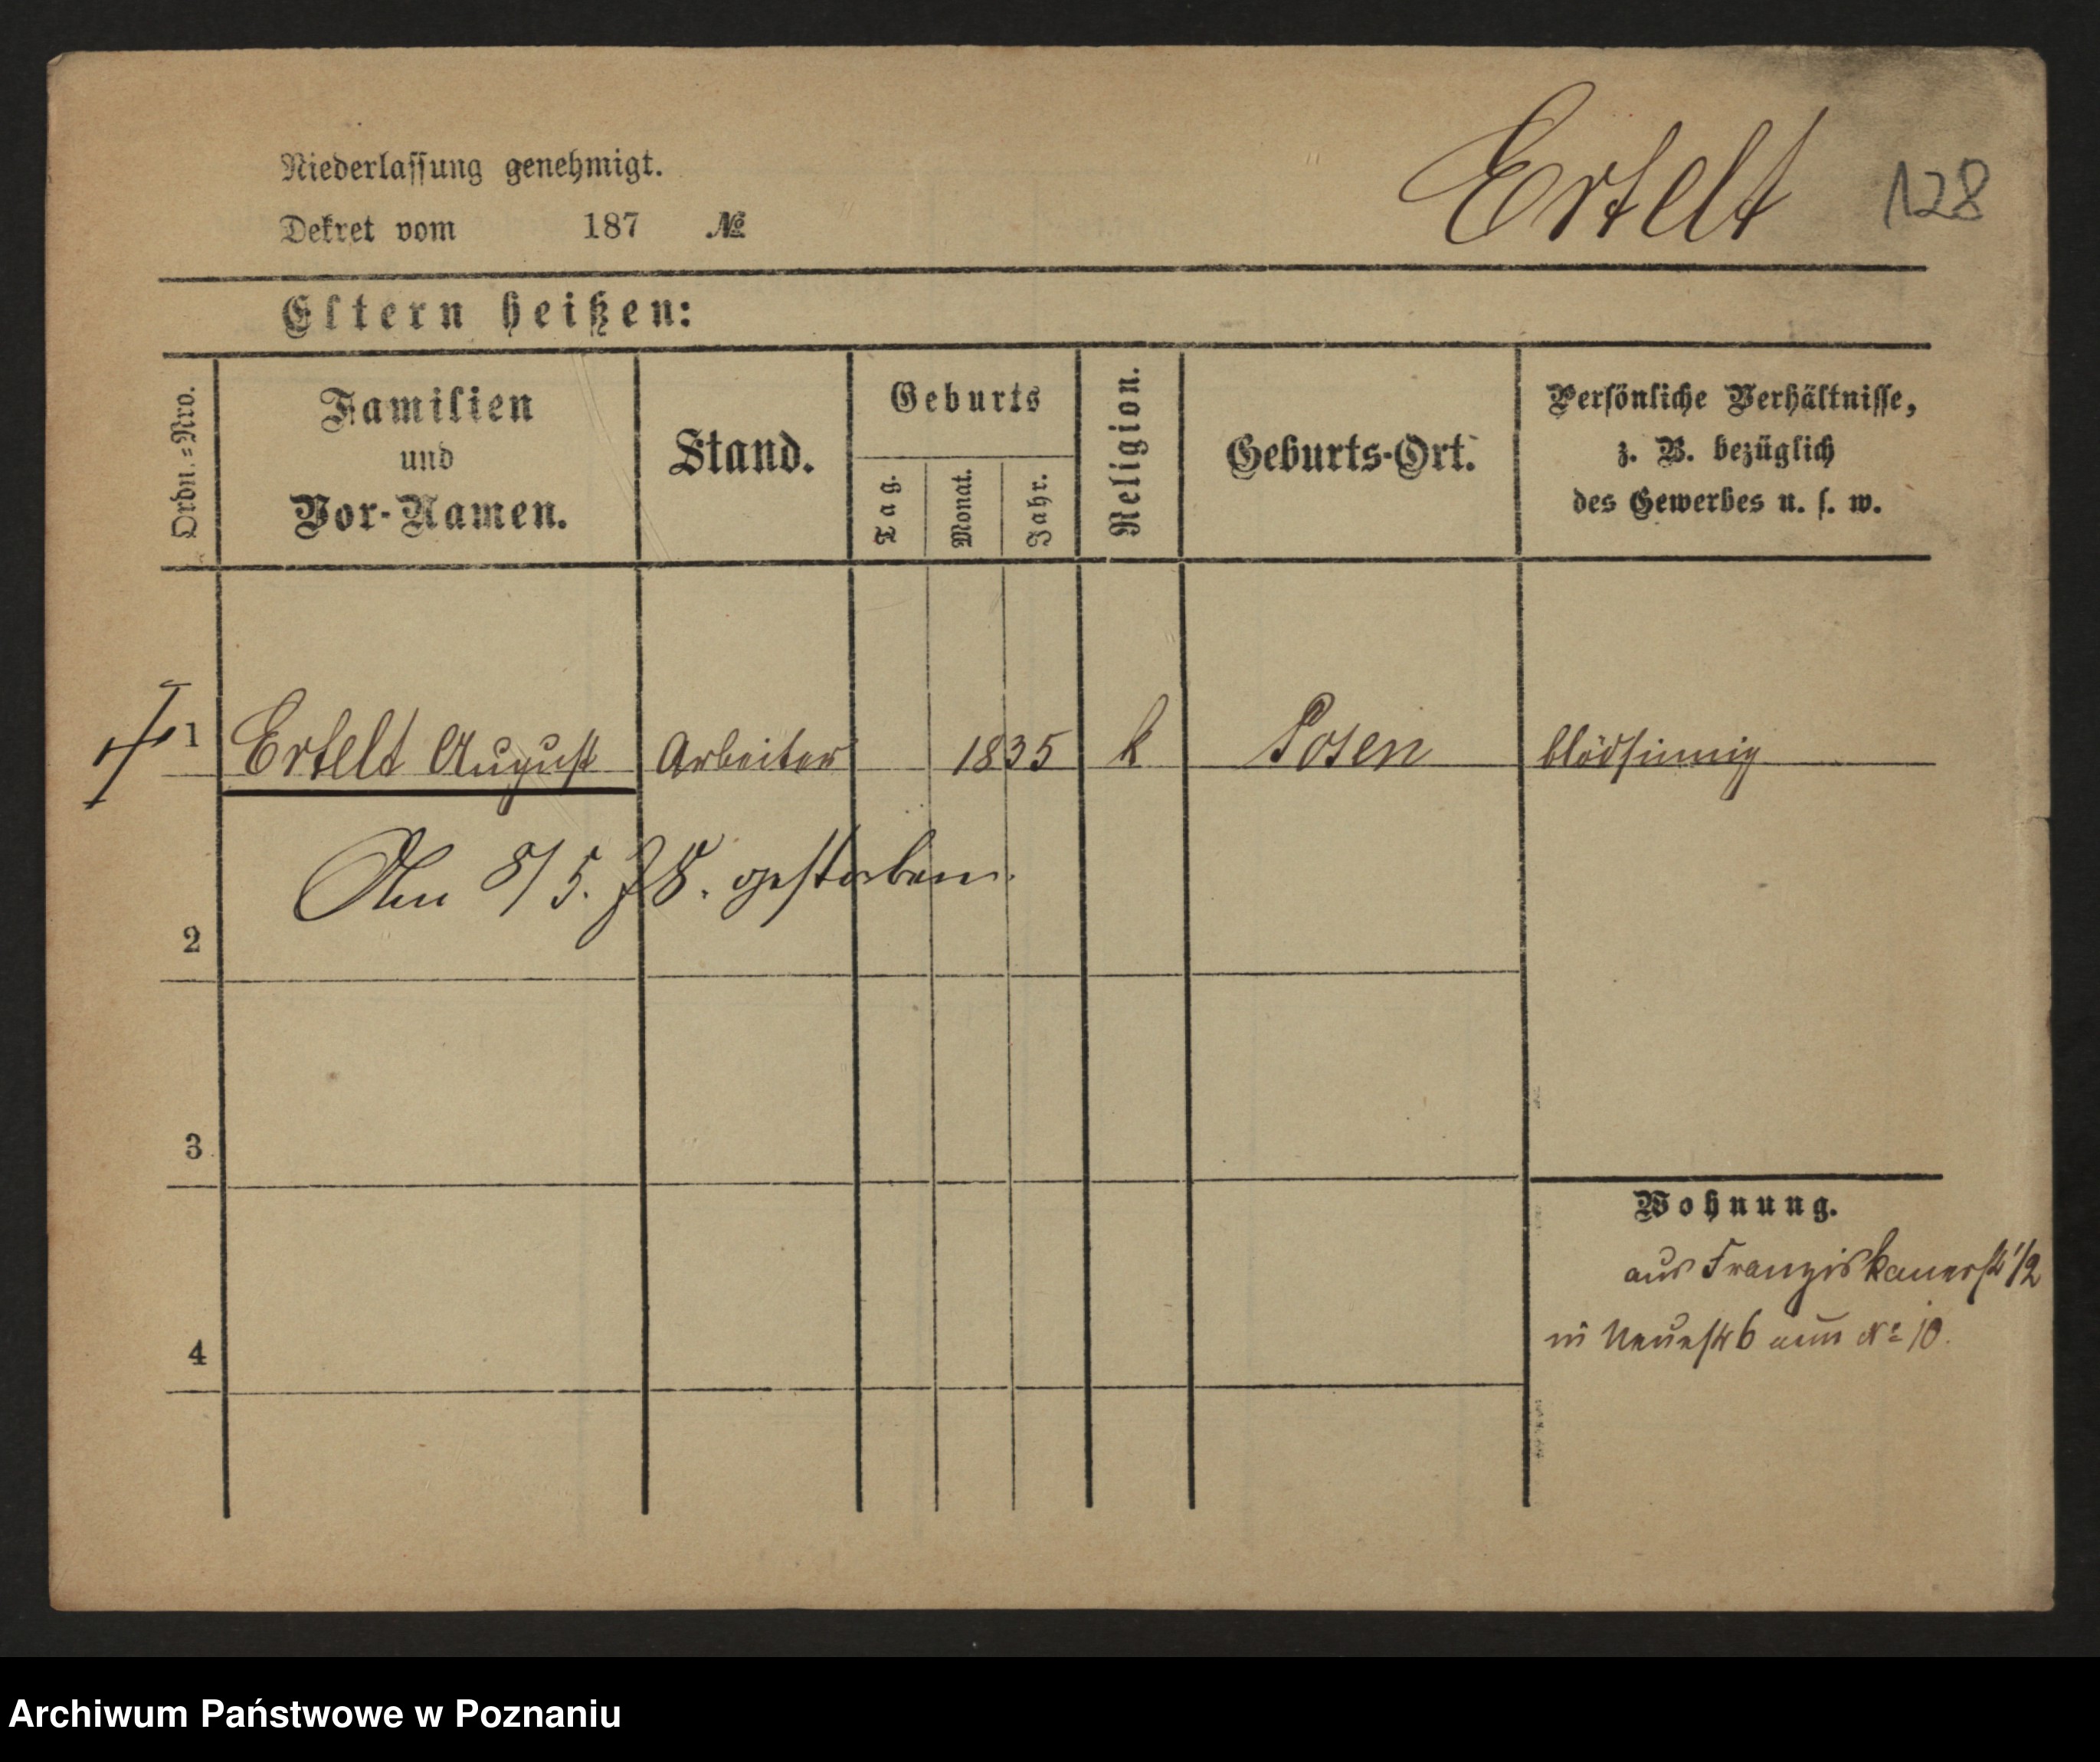 Niederlassung genehmigt.
Dekret vom 187 №
Ertelt 128
Eltern heißen:
Ordn.=Nro.
Familien
und
Vor-Namen.
Stand.
Geburts
Tag.
Monat.
Jahr.
Religion.
Geburts-Ort.
Persönliche Verhältnisse,
z. B. bezüglich
des Gewerbes u. s. w.
1 Ertelt August Arbeiter 1835 k Posen blödsinnig
Am 8/5. 78. gestorben.
2
3
Wohnung.
aus Franziskanerstr 1/2
4
in Neuestr 6 nun № 10.
Archiwum Państwowe w Poznaniu